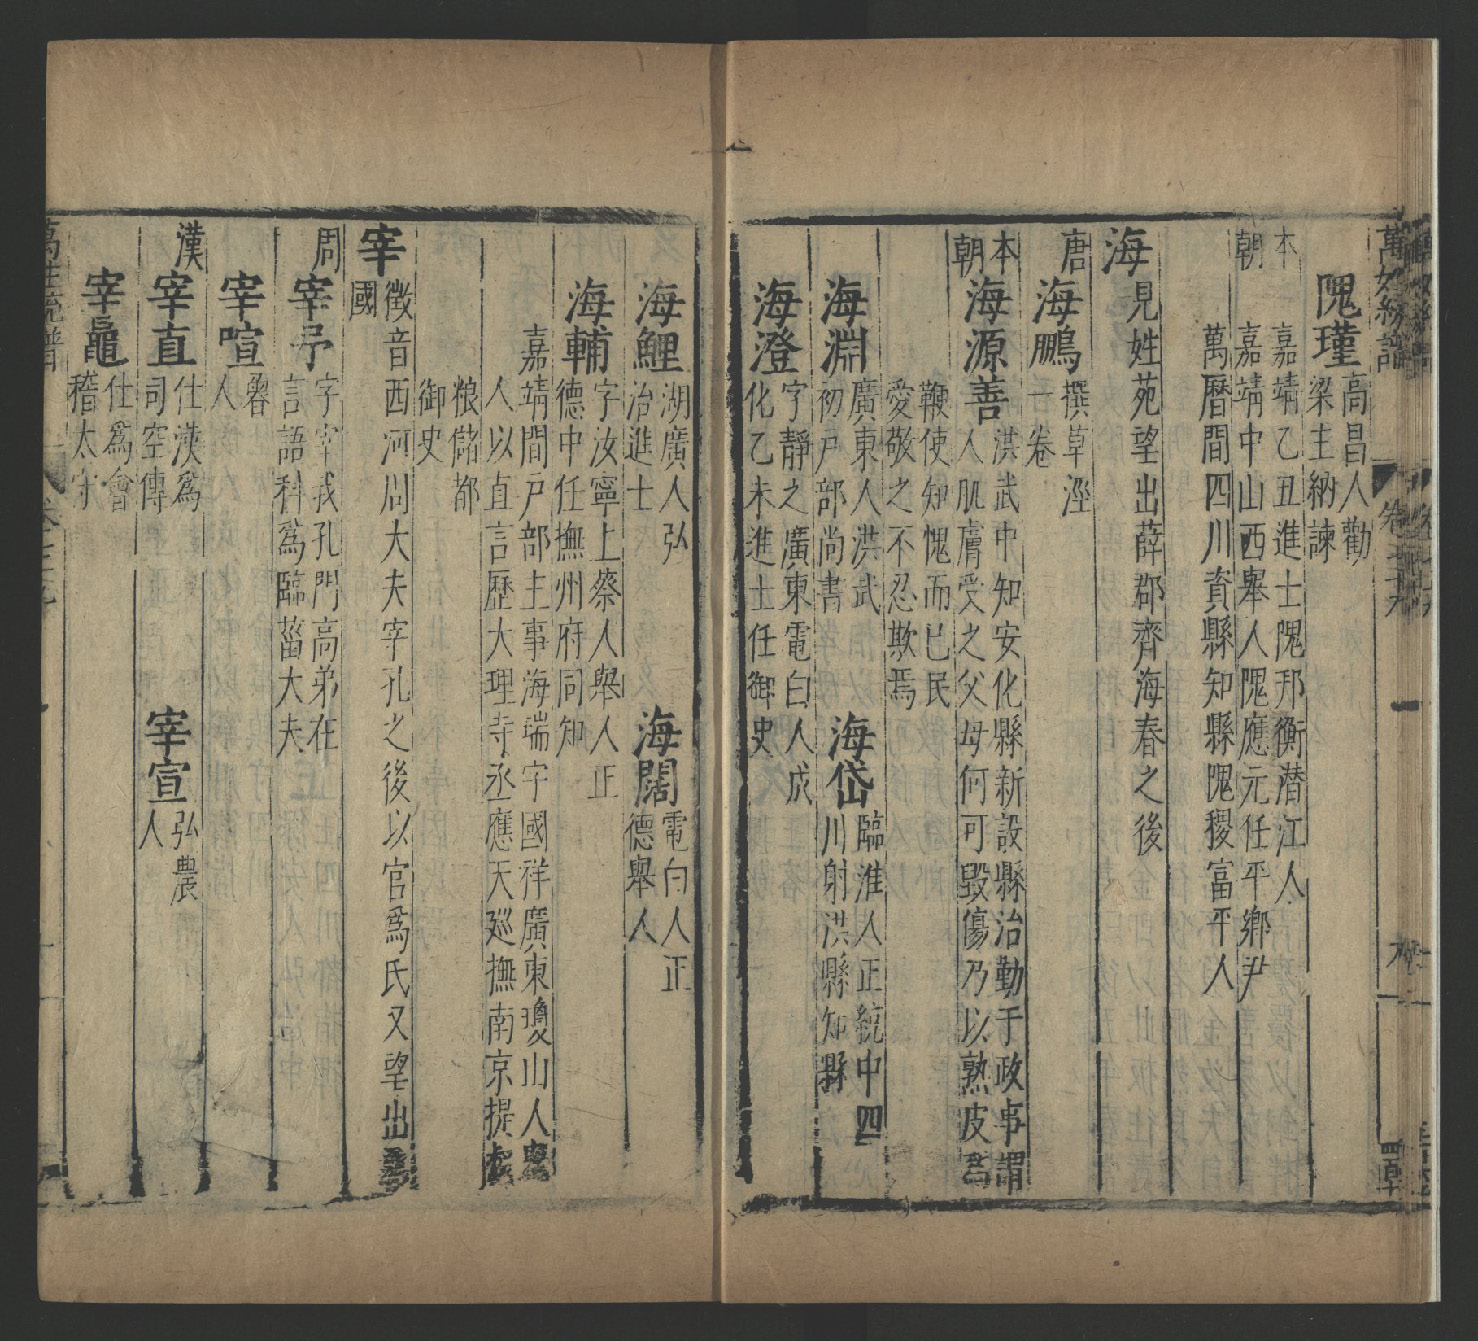 萬姓統譜
隗瑾
高昌人勸
梁主納諫
本朝
嘉靖乙丑進士隗邦衡潜江人
嘉靖中山西舉人隗應元任平鄉尹
萬曆間四川資縣知縣隗稷富平人
海
見姓苑望出薛郡齊海春之後
唐
海鵬
撰草涇
一卷
本朝
海源善
洪武中知安化縣新設縣治勤于政事謂
人肌膚受之父母何可毀傷乃以熟皮為
鞭使知愧而已民
愛敬之不忍欺焉
海淵
廣東人洪武
初戶部尚書
海岱
臨淮人正統中四
川射洪縣知縣
海澄
字靜之廣東電白人成
化乙未進士任御史
海鯉
湖廣人弘
治進士
海闊
電白人正
德舉人
海輔
字汝寧上蔡人舉人正
德中任撫州府同知
嘉靖間戶部主事海瑞字國祥廣東瓊山人
人以直言歷大理寺丞應天廵撫南京提
粮儲都
御史
宰
徴音西河周大夫宰孔之後以官為氏又望出
國
周
宰予
字宰我孔門高弟在
言語科為臨菑大夫
宰喧
魯
人
漢
宰直
仕漢為
司空傳
宰宣
弘農
人
宰鼂
仕為會
稽太守
萬姓統譜